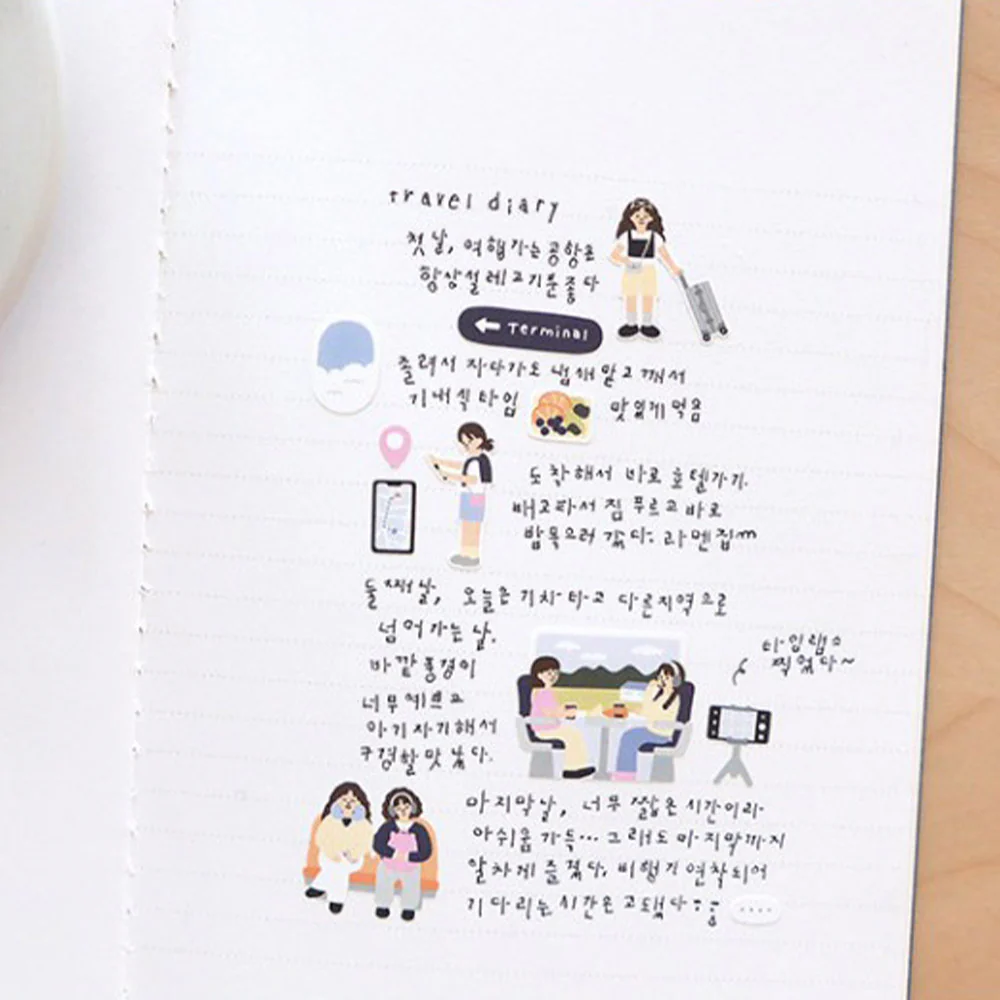 travel diary
첫날, 여행가는 공항은
항상 설레고 기분 좋다
← Terminal
졸려서 자다가도 냄새 맡고 깨서
기내식 타임 맛있게 먹음
도착해서 바로 호텔가기.
배고파서 짐 푸르고 바로
밥 먹으러 갔다. 라멘집m
둘째날, 오늘은 기차타고 다른지역으로
넘어가는 날.
바깥 풍경이
너무 예쁘고
아기자기해서
구경할 맛 났다.
타임랩스
찍었다~
마지막날, 너무 짧은 시간이라
아쉬움 가득... 그래도 마지막까지
알차게 즐겼다. 비행기 연착되어
기다리는 시간은 고됐다
....